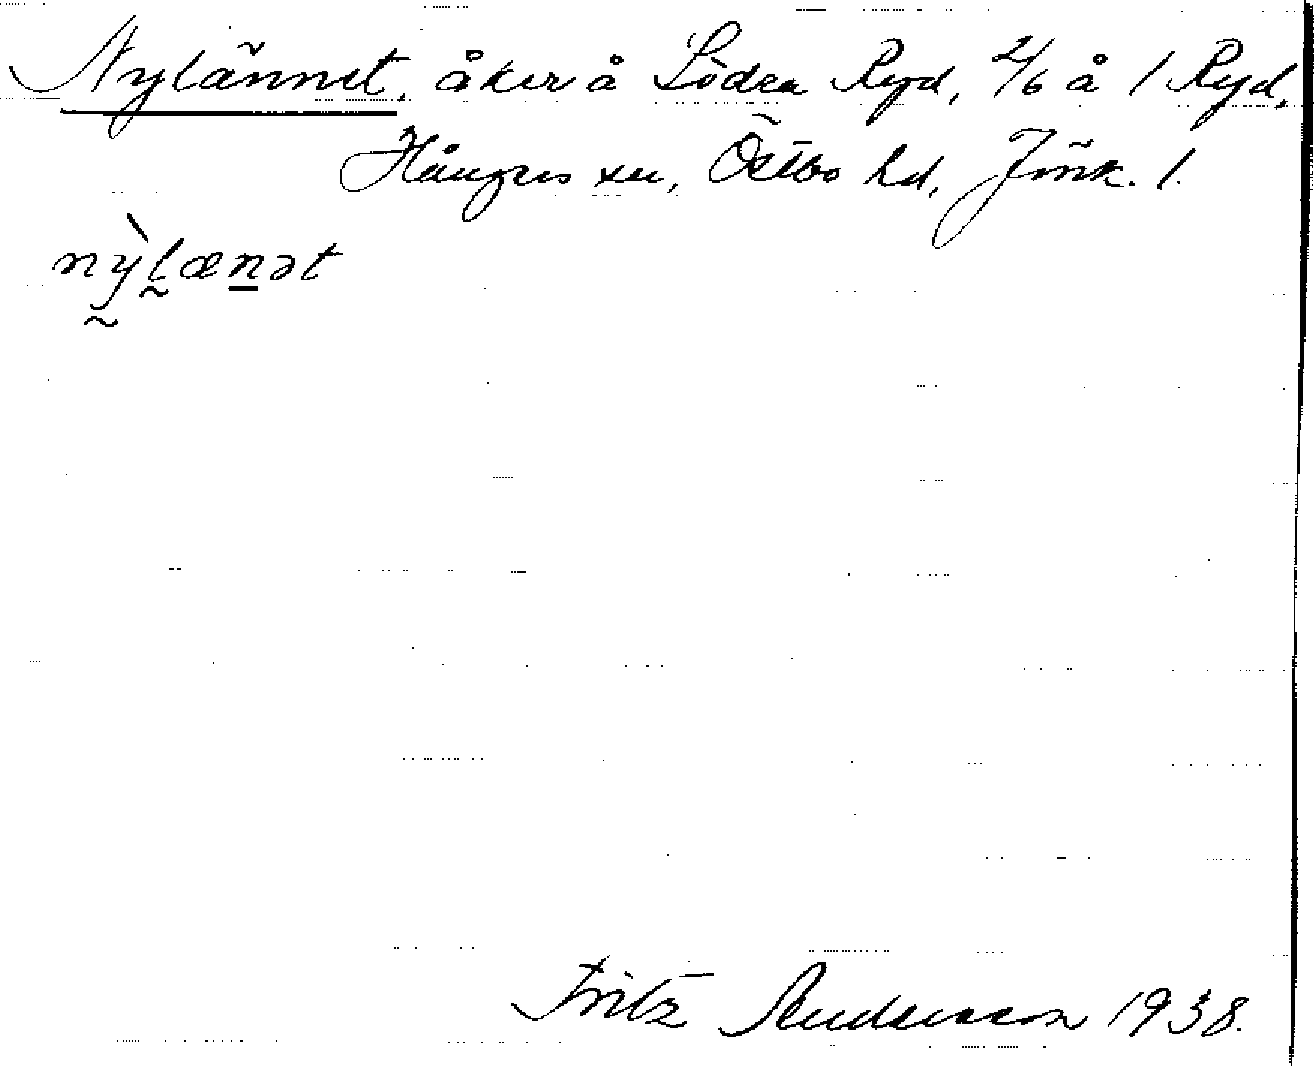 Nylännet, åker å Södra Ryd, 2/6 å 1 Ryd,
Hångers sn, Östbo hd, Jönk. l.
nỳlænət
Fritz Andersson 1938.